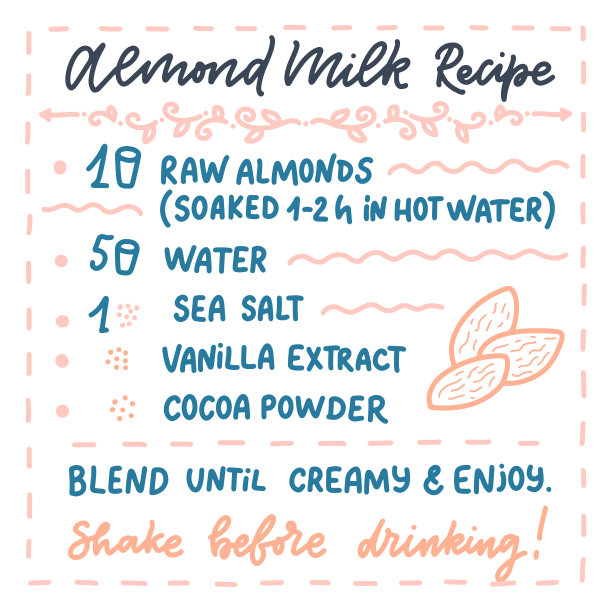 Almond Milk Recipe
1 RAW ALMONDS
(SOAKED 1-2 h iN HOT WATER)
5 WATER
1 SEA SALT
VANiLLA EXTRACT
COCOA POWDER
BLEND UNTiL CREAMY & ENJOY.
Shake before drinking!